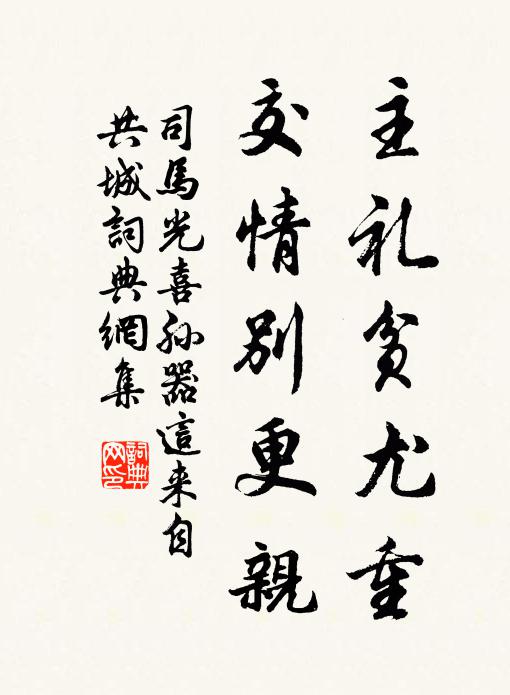 主礼贫尤重
交情别更親
司馬光喜孙器這来自
共城詞典網集
詞典
网印